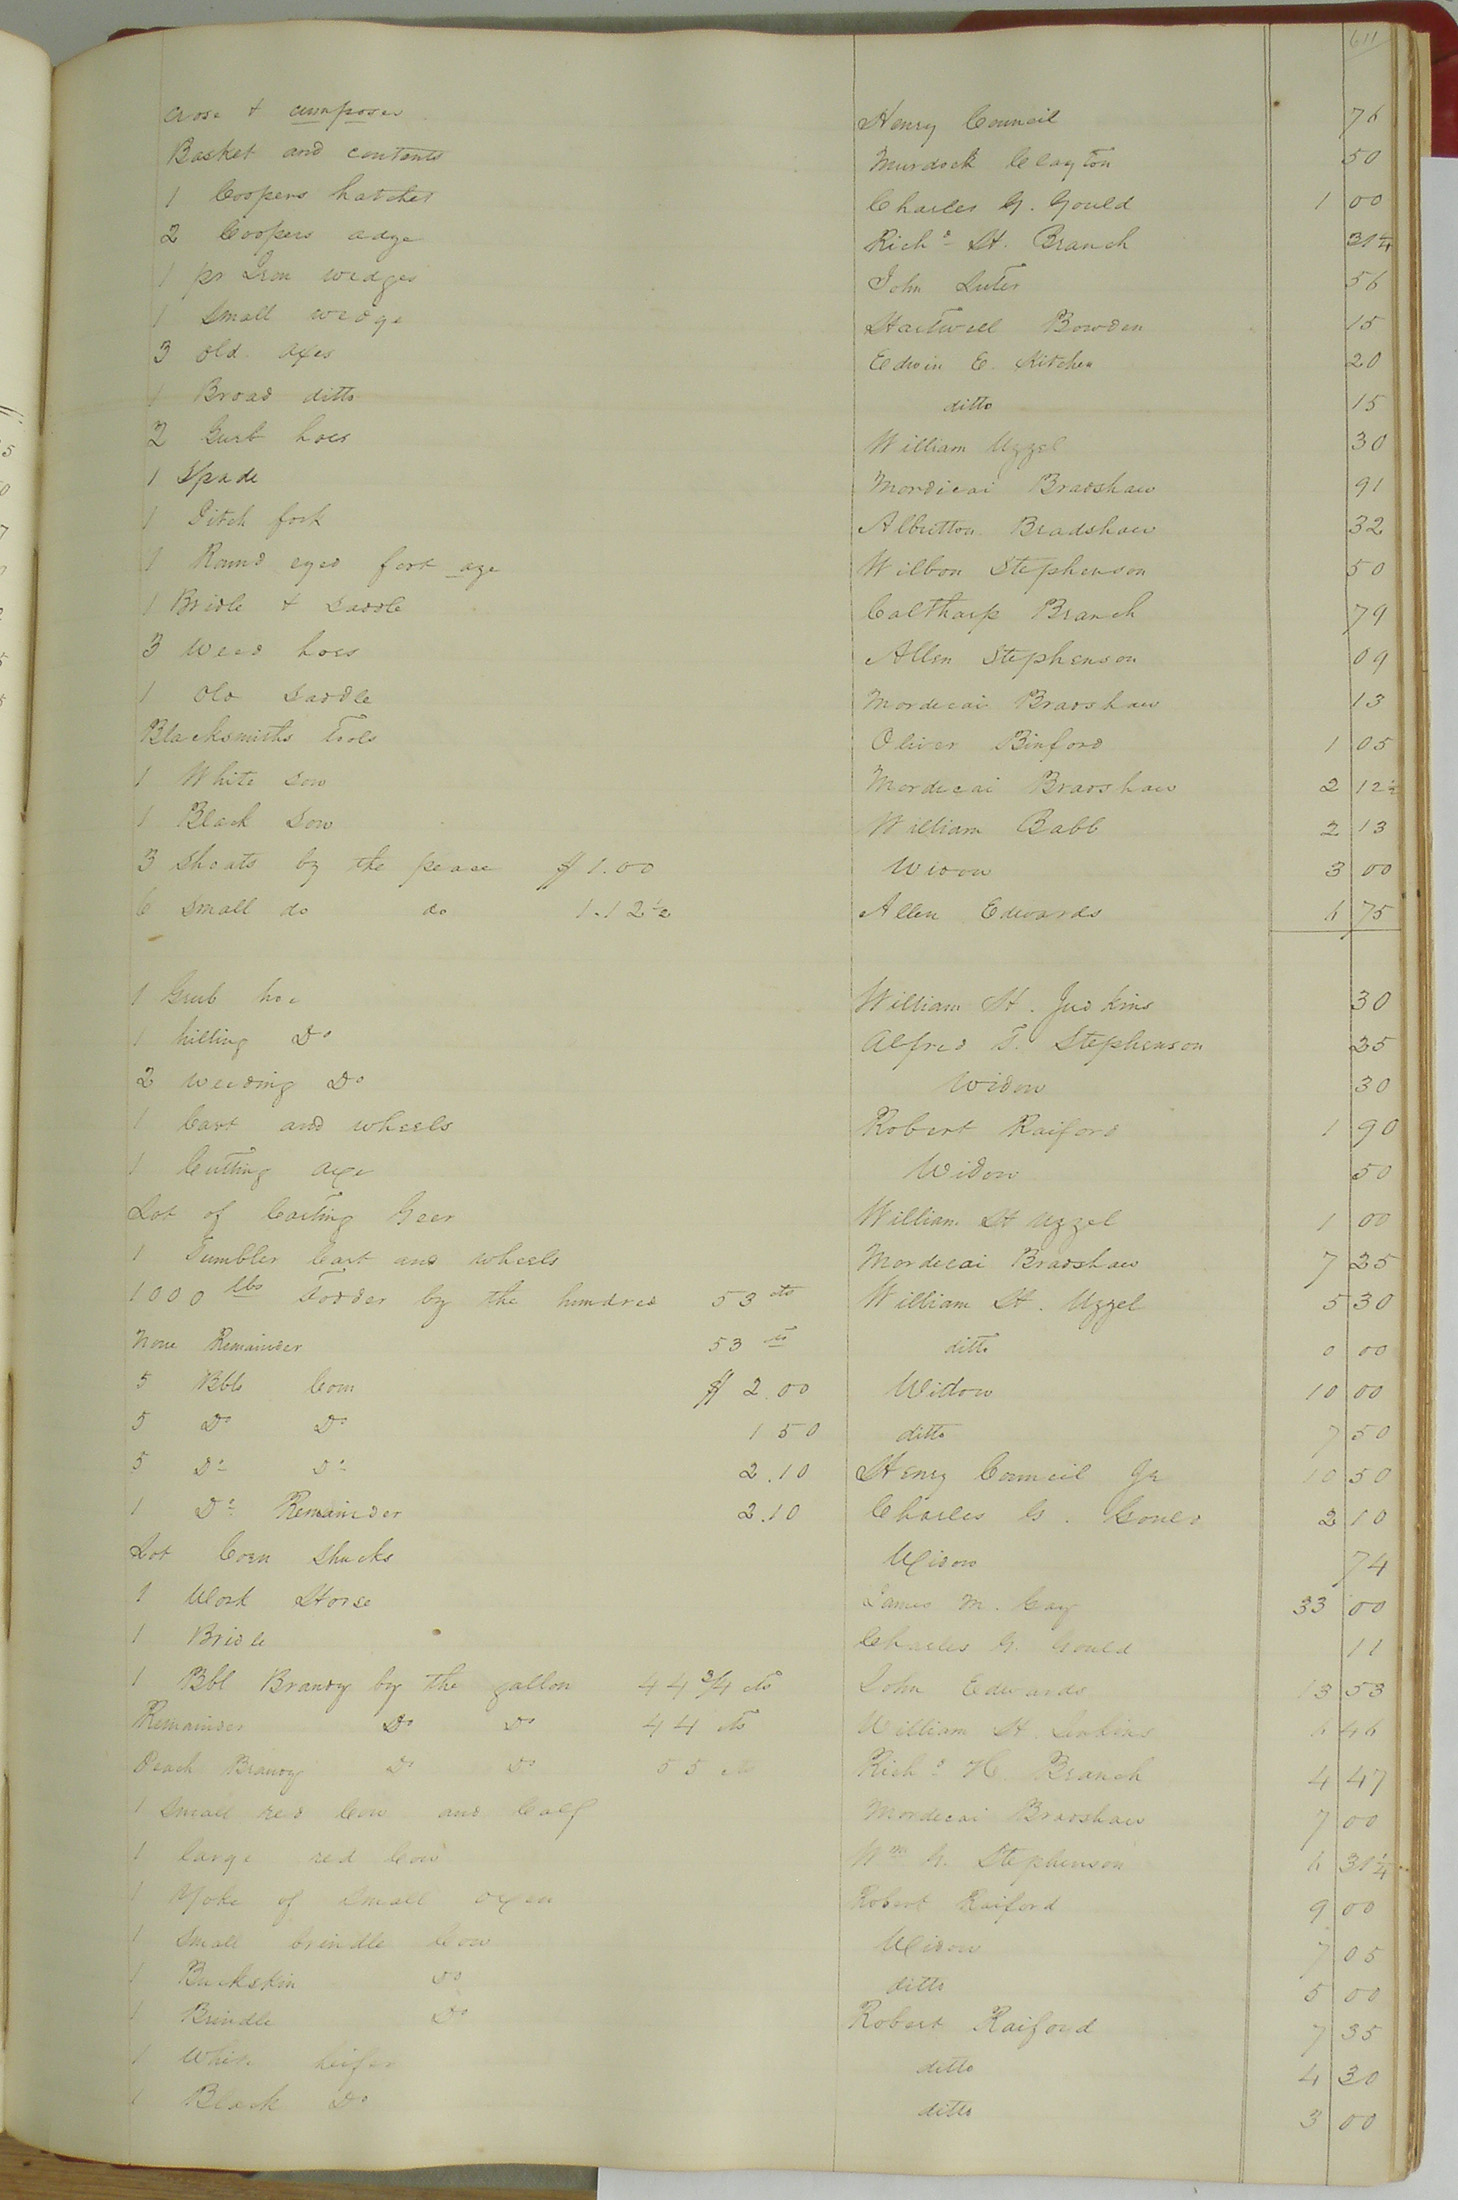 611
Crose + compases Henry Council 76
Basket and contents Murdock Clayton 50
1 Coopers hatchet Charles G. Gould 1 00
2 Coopers adge Richd H. Branch 31 1/4
1 pr Iron wedges John Luter 56
1 Small wedge Hartwell Bowden 15
3 old axes Edwin E. Kitchen 20
1 Broad ditto ditto 15
2 Gurb hoes William Uzzel 30
1 Spade Mordicai Bradshaw 91
1 Ditch fork Albritton Bradshaw 32
1 Round eyed foot age Wilbon Stephenson 50
1 Bridle + Saddle Calthorp Branch 79
3 Weed hoes Allen Stephenson 09
1 Old Saddle Mordecai Bradshaw 13
Blacksmiths Tools Oliver Binford 1 05
1 White Sow Mordecai Bradshaw 2 12 1/2
1 Black Sow William Babb 2 13
3 Shoats by the peace $1.00 Widow 3 00
6 Small do do 1.12 1/2 Allen Edwards 6 75
1 Grub hoe William H. Judkins 30
1 hilling Do Alfred T. Stephenson 25
2 weeding Do Widow 30
1 Cart and wheels Robert Raiford 1 90
1 Cutting axe Widow 50
Lot of Carting Geer William H Uzzel 1 00
1 Tumbler Cart and wheels Mordecai Bradshaw 7 25
1000 lbs Fodder by the hundred 53 cts William H. Uzzel 5 30
None Remainder 53 cts ditto 0 00
5 Bbls Corn $2.00 Widow 10 00
5 Do Do 1 50 ditto 7 50
5 Do Do 2.10 Henry Council Jr 10 50
1 Do Remainder 2.10 Charles G. Gould 2 10
Lot Corn Shucks Widow 74
1 Work Horse James M. Gay 33 00
1 Bridle Charles G. Gould 11
1 Bbl Brandy by the gallon 44 3/4 cts John Edwards 13 53
Remainder Do Do 44 cts William H. 6 46
Peach Brandy Do Do 55 cts Richd H. Branch 4 47
1 Small red Cow and Calf Mordecai Bradshaw 7 00
1 large red Cow Wm G. Stephenson 6 31 1/4
1 Yoke of small oxen Robert Raiford 9 00
1 Small brindle Cow Widow 7 05
1 Buckskin Do ditto 5 00
1 Brindle Do Robert Raiford 7 35
1 White heifer ditto 4 30
1 Black Do ditto 3 00